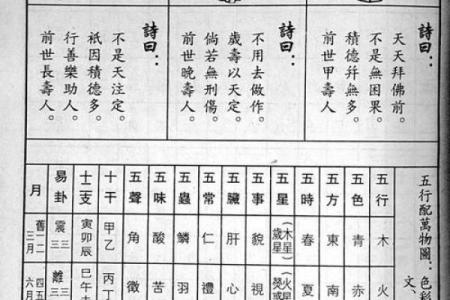 詩曰：
天天拜佛前。
不是無因果。
積德幷無多。
前世甲壽人
詩曰：
不用去做作。
歲壽以天定。
倘若無刑傷。
前世晚壽人。
詩曰：
不是天注定。
祇因積德多。
行善樂助人。
前世長壽人。
五行配萬物圖：色彩
文、
五行 木 火
五色 青 赤
五方 東 南
五時 春 夏
五星 （木星）歲星 （火星
五事 貌 視
五臟 肝 心
五常 仁 禮
五蟲 鱗 羽
五味 酸 苦
五聲 角 徵
十干 甲乙 丙丁
十二支 寅卯辰 巳午
易卦 震☳ 離☲
月 舊三月 四五六月